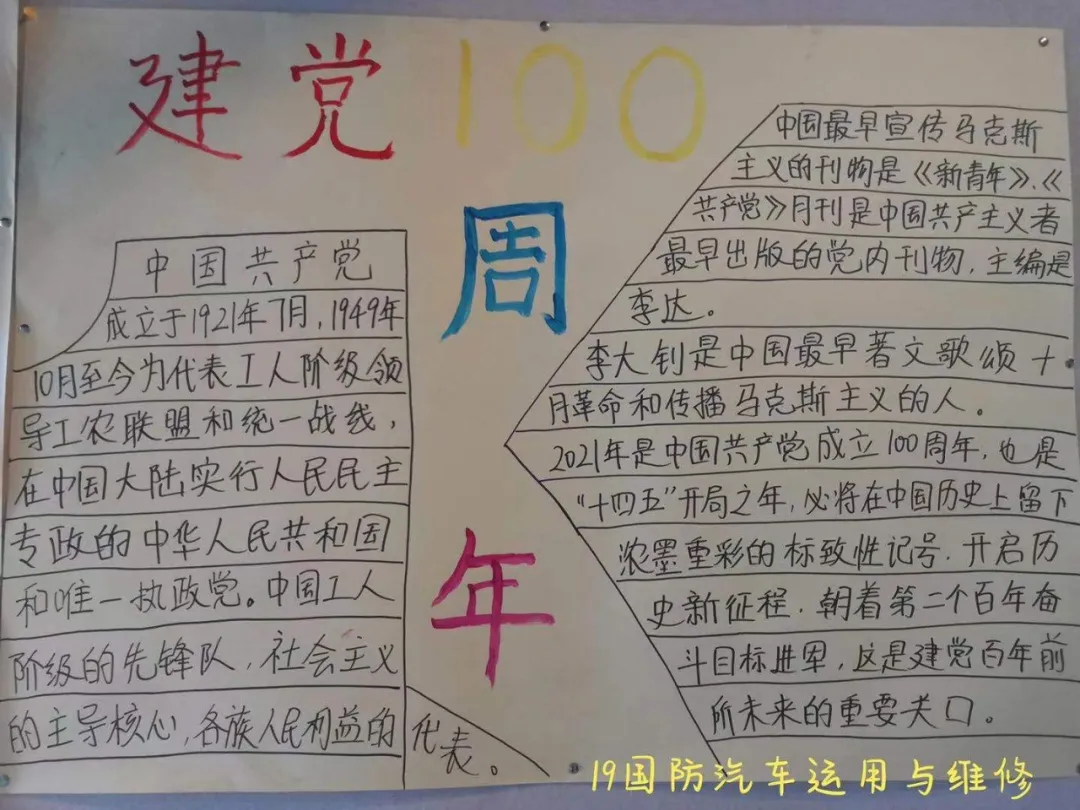 建党100
周
年
中国共产党
成立于1921年7月,1949年
10月至今为代表工人阶级领
导工农联盟和统一战线,
在中国大陆实行人民民主
专政的中华人民共和国
和唯一执政党。中国工人
阶级的先锋队,社会主义
的主导核心,各族人民利益的
代表。
中国最早宣传马克斯
主义的刊物是《新青年》、《
共产党》月刊是中国共产主义者
最早出版的党内刊物,主编是
李达。
李大钊是中国最早著文歌颂十
月革命和传播马克斯主义的人。
2021年是中国共产党成立100周年,也是
“十四五”开局之年,必将在中国历史上留下
浓墨重彩的标致性记号.开启历
史新征程.朝着第二个百年奋
斗目标进军,这是建党百年前
所未来的重要关口。
19国防汽车运用与维修